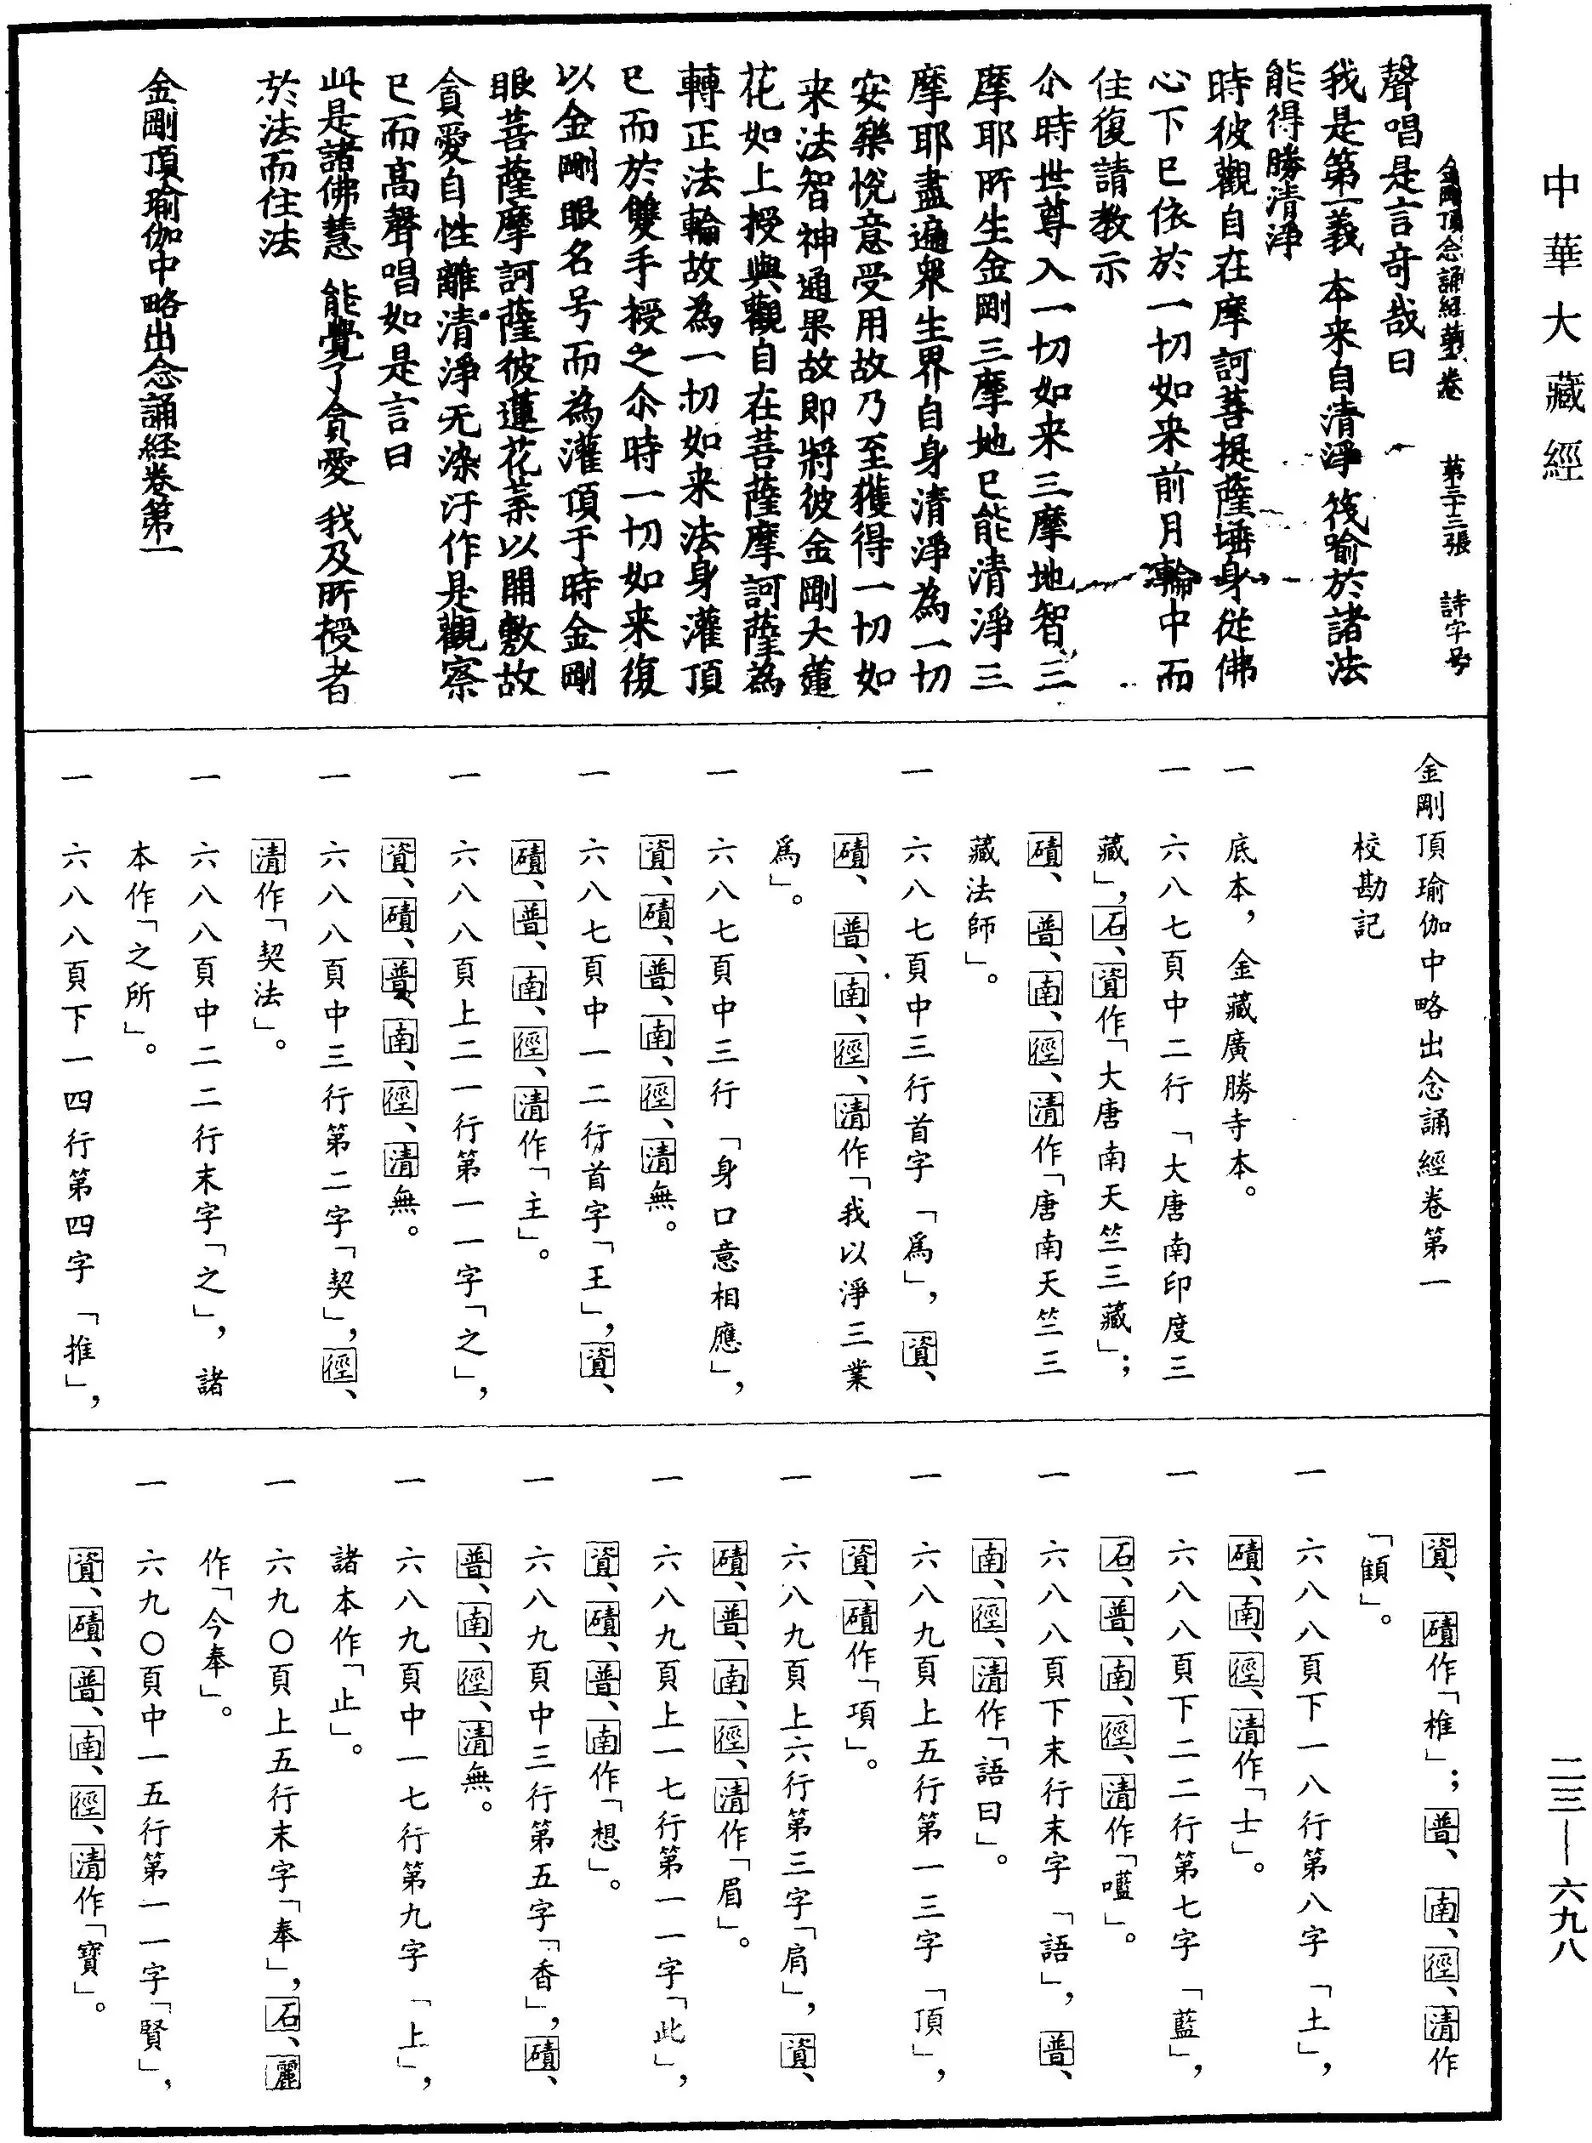 中華大藏經
金剛頂念誦經第一卷　第三十三張　詩字号
聲唱是言奇哉曰
我是第一義　本来自清淨　筏喻於諸法
能得勝清淨
時彼觀自在摩訶菩提薩埵身從佛
心下已依於一切如来前月輪中而
住復請教示
尒時世尊入一切如来三摩地智三
摩耶所生金剛三摩地已能清淨三
摩耶盡遍衆生界自身清淨為一切
安樂悅意受用故乃至獲得一切如
来法智神通果故即將彼金剛大蓮
花如上授與觀自在菩薩摩訶薩為
轉正法輪故為一切如来法身灌頂
已而於雙手授之尒時一切如来復
以金剛眼名号而為灌頂于時金剛
眼菩薩摩訶薩彼蓮花葉以開敷故
貪愛自性離清淨无染汙作是觀察
已而高聲唱如是言曰
此是諸佛慧　能覺了貪愛　我及所授者
於法而住法
金剛頂瑜伽中略出念誦經卷第一
金剛頂瑜伽中略出念誦經卷第一
校勘記
一　底本，金藏廣勝寺本。
一　六八七頁中二行「大唐南印度三
藏」，石、資作「大唐南天竺三藏」；
磧、普、南、徑、清作「唐南天竺三
藏法師」。
一　六八七頁中三行首字「爲」，資、
磧、普、南、徑、清作「我以淨三業
爲」。
一　六八七頁中三行「身口意相應」，
資、磧、普、南、徑、清無。
一　六八七頁中一二行首字「王」，資、
磧、普、南、徑、清作「主」。
一　六八八頁上二一行第一一字「之」，
資、磧、普、南、徑、清無。
一　六八八頁中三行第二字「契」，徑、
清作「契法」。
一　六八八頁中二二行末字「之」，諸
本作「之所」。
一　六八八頁下一四行第四字「推」，
資、磧作「椎」；普、南、徑、清作
「顀」。
一　六八八頁下一八行第八字「土」，
磧、南、徑、清作「士」。
一　六八八頁下二二行第七字「藍」，
石、普、南、徑、清作「囕」。
一　六八八頁下末行末字「語」，普、
南、徑、清作「語曰」。
一　六八九頁上五行第一三字「頂」，
資、磧作「項」。
一　六八九頁上六行第三字「肩」，資、
磧、普、南、徑、清作「眉」。
一　六八九頁上一七行第一一字「此」，
資、磧、普、南作「想」。
一　六八九頁中三行第五字「香」，磧、
普、南、徑、清無。
一　六八九頁中一七行第九字「上」，
諸本作「止」。
一　六九〇頁上五行末字「奉」，石、麗
作「今奉」。
一　六九〇頁中一五行第一一字「賢」，
資、磧、普、南、徑、清作「寶」。
二三—六九八